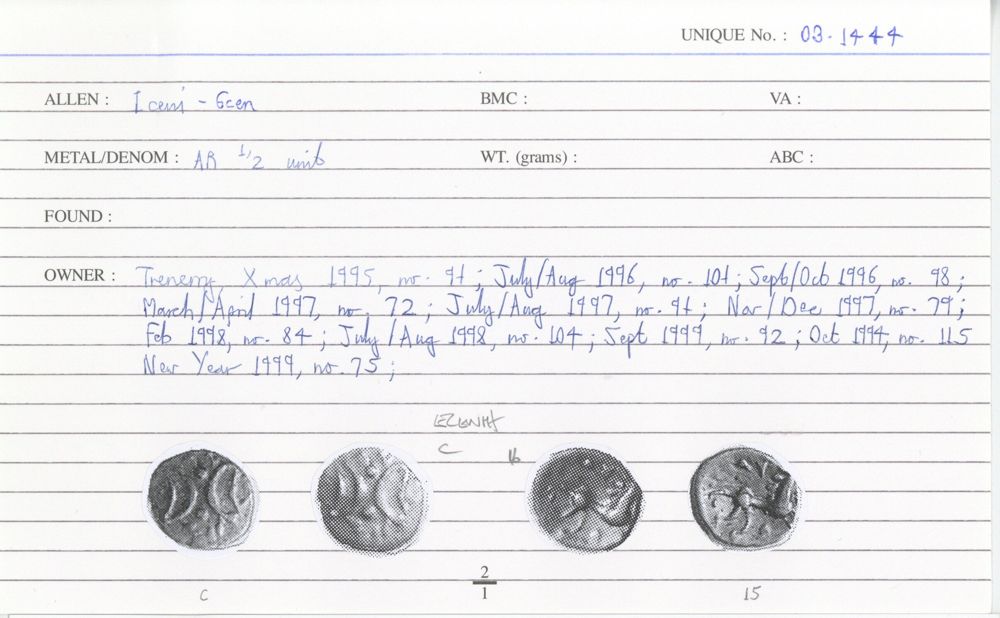 UNIQUE No. : 03.1444
ALLEN : Iceni - Ecen BMC : VA :
METAL/DENOM : AR 1/2 unit WT. (grams) : ABC :
FOUND :
OWNER : Trenerry, Xmas 1995, no. 91 ; July/Aug 1996, no. 101 ; Sept/Oct 1996, no. 98 ;
March/April 1997, no. 72 ; July/Aug 1997, no. 91 ; Nov/Dec 1997, no. 79 ;
Feb 1998, no. 84 ; July/Aug 1998, no. 104 ; Sept 1999, no. 92 ; Oct no. 115
New Year 1999, no. 75 ;
C 16
C 2/1 15